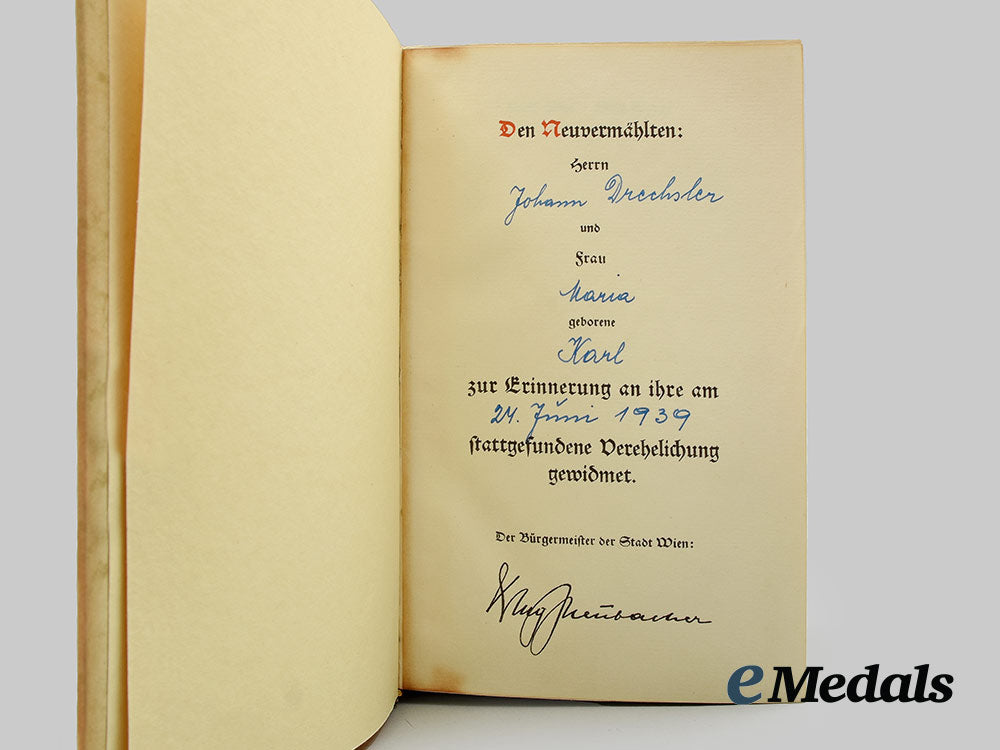 Den Neuvermählten:
Herrn
Johann Drechsler
und
Frau
Maria
geborene
Karl
zur Erinnerung an ihre am
24. Juni 1939
stattgefundene Verehelichung
gewidmet.
Der Bürgermeister der Stadt Wien:
Neubacher
eMedals